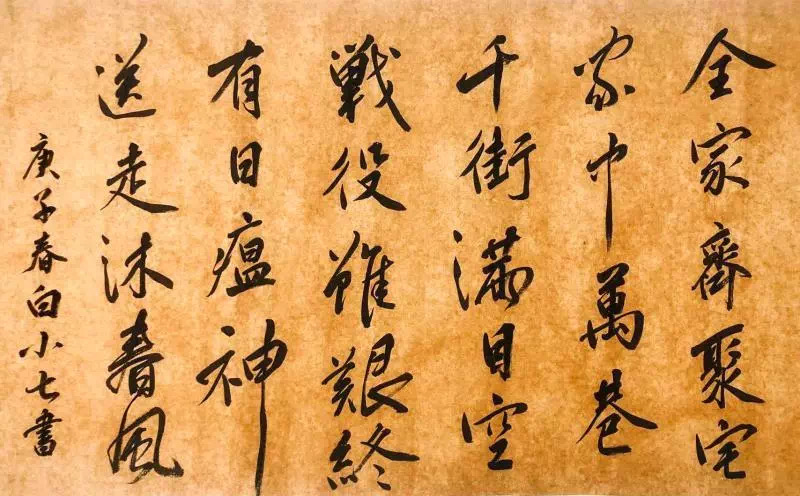 全家齊聚宅
家中萬巷
千街滿目空
戰役雖艱終
有日瘟神
送走沐春風
庚子春白小七書